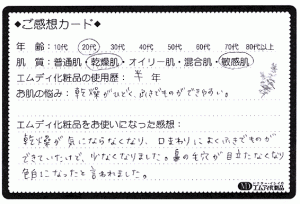 ◆ご感想カード◆
年 齢：10代 20代 30代 40代 50代 60代 70代 80代以上
肌 質：普通肌・乾燥肌・オイリー肌・混合肌・敏感肌
エムディ化粧品の使用歴：半 年
お肌の悩み：乾燥がひどく、ふきでものができやすい。
エムディ化粧品をお使いになった感想：
乾燥が気にならなくなり、口まわりによくふきでものが
できていたけど、少なくなりました。鼻の毛穴が目立たなくなり
色白になったと言われました。
MD エムディ化粧品